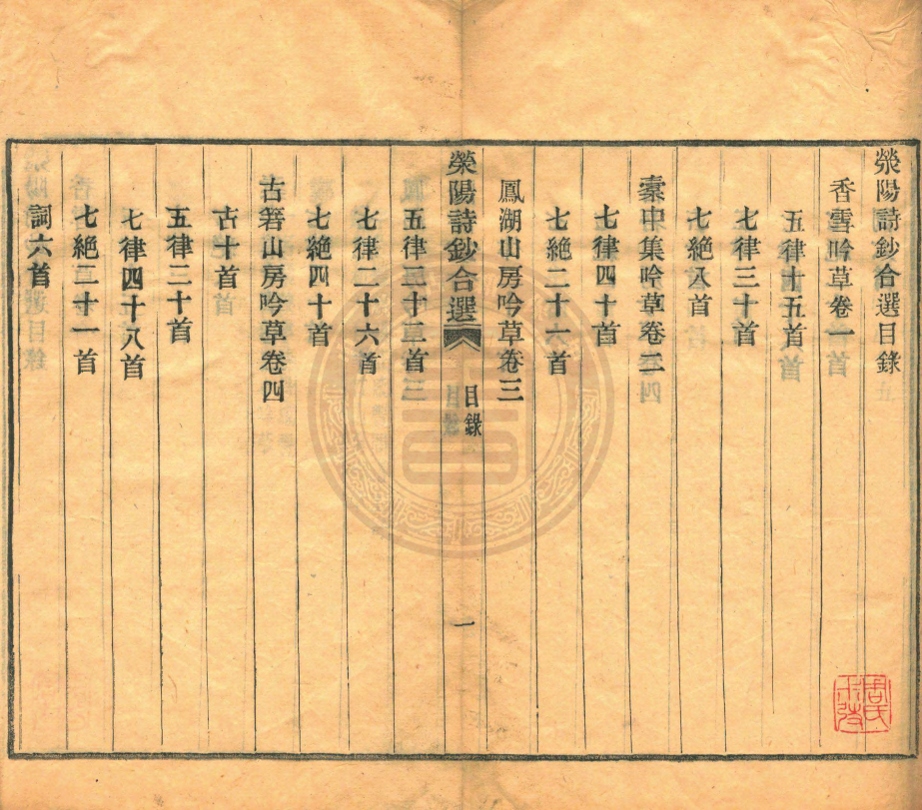 滎陽詩鈔合選目錄
香雪吟草卷一
五律十五首
七律三十首
七絶八首
橐中集吟草卷二
七律四十首
七絶二十六首
鳳湖山房吟草卷三
滎陽詩鈔合選
目錄
一
五律三十二首
七律二十六首
七絶四十首
古砦山房吟草卷四
古十首
五律二十首
七律四十八首
七絶二十一首
詞六首